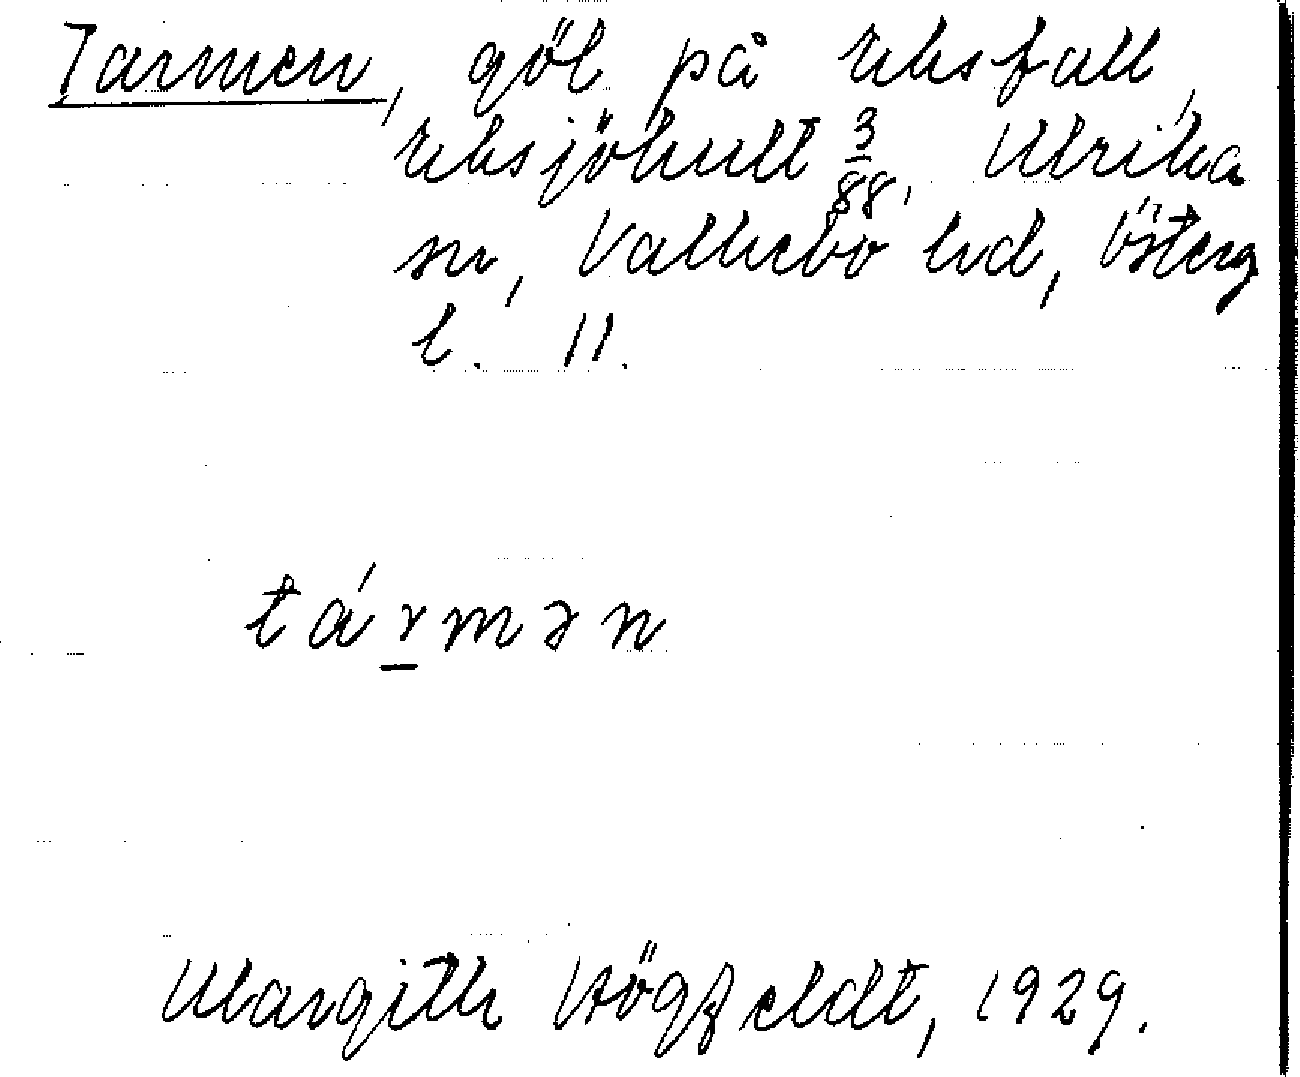 Tarmen, göl på utsfall,
Eksjöhult 3/88, Ulrika
sn, Valkebo hd, Österg
l. 11.
tármən
Margith Högfeldt, 1929.